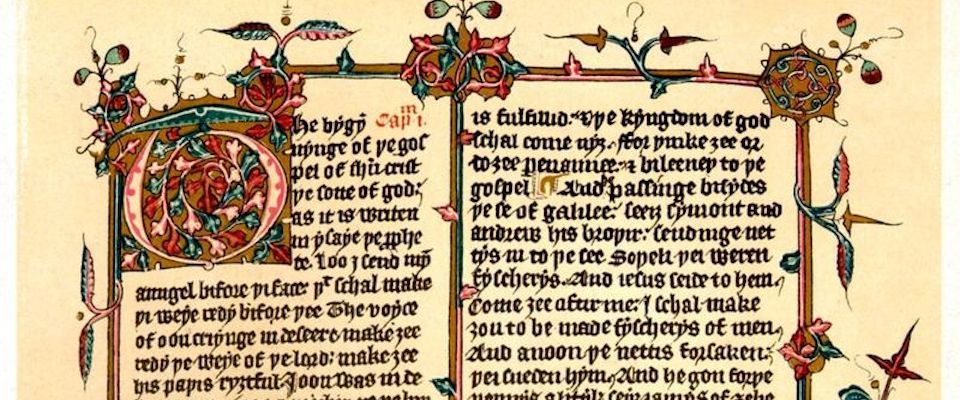 The bygy̅ Cap̅m i.
nynge of þe gos
pel of ih̅u crist
þe sone of god:
as it is writen
in ysaye þe p̅phe
te. Loo I send my̅
aungel bifore þi face: þt schal make
þi weye redy bifore þee The voyce
of oon cryinge in desert: make зee
redy þe weye of þe lord: make зee
his paþis ryзtful. Joon was in de
is fulfillid: þe kyngdom of god
schal come nyз. ffor þinke зee or
do зee penaunce: & bileeueþ to þe
gospel And passinge bisydes
þe se of galilee: seeз symont and
andrew his broþir: sendinge net
tys in to þe see Soþeli þei weren
fyscherys. And iesus seide to hem,
Come зee aftir me: I schal make
зou to be made fyscherys of men,
And anoon þe nettis forsaken:
þei sueden hym, And he gon forþe